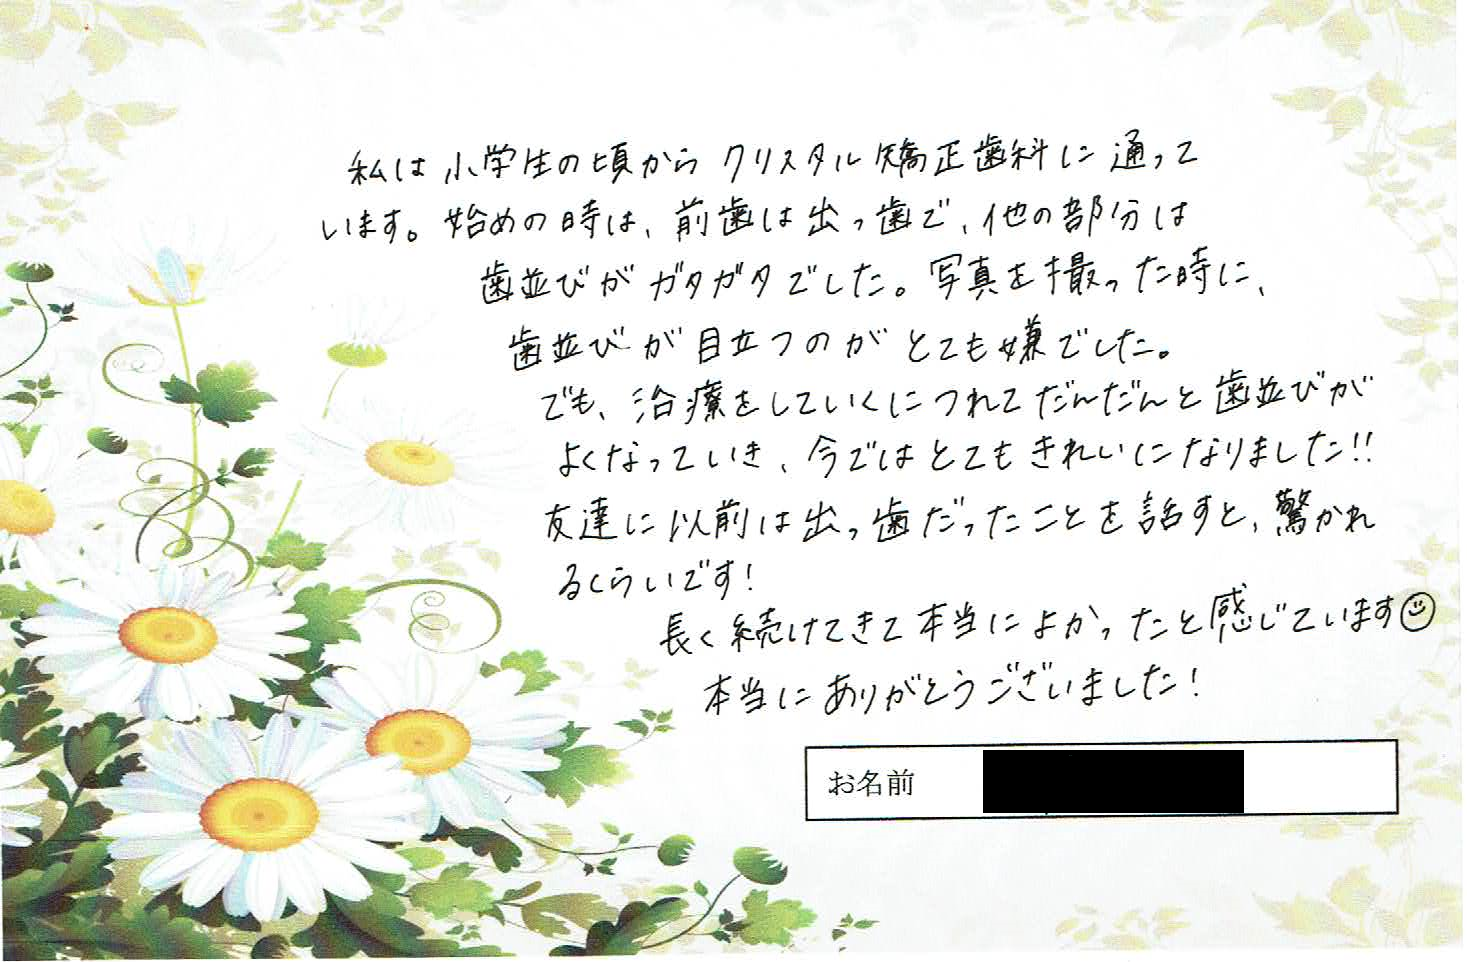 私は小学生の頃からクリスタル矯正歯科に通って
います。始めの時は、前歯は出っ歯で、他の部分は
歯並びがガタガタでした。写真を撮った時に、
歯並びが目立つのがとても嫌でした。
でも、治療をしていくにつれてだんだんと歯並びが
よくなっていき、今ではとてもきれいになりました!!
友達に以前は出っ歯だったことを話すと、驚かれ
るくらいです!
長く続けてきて本当によかったと感じています☺
本当にありがとうございました!
お名前